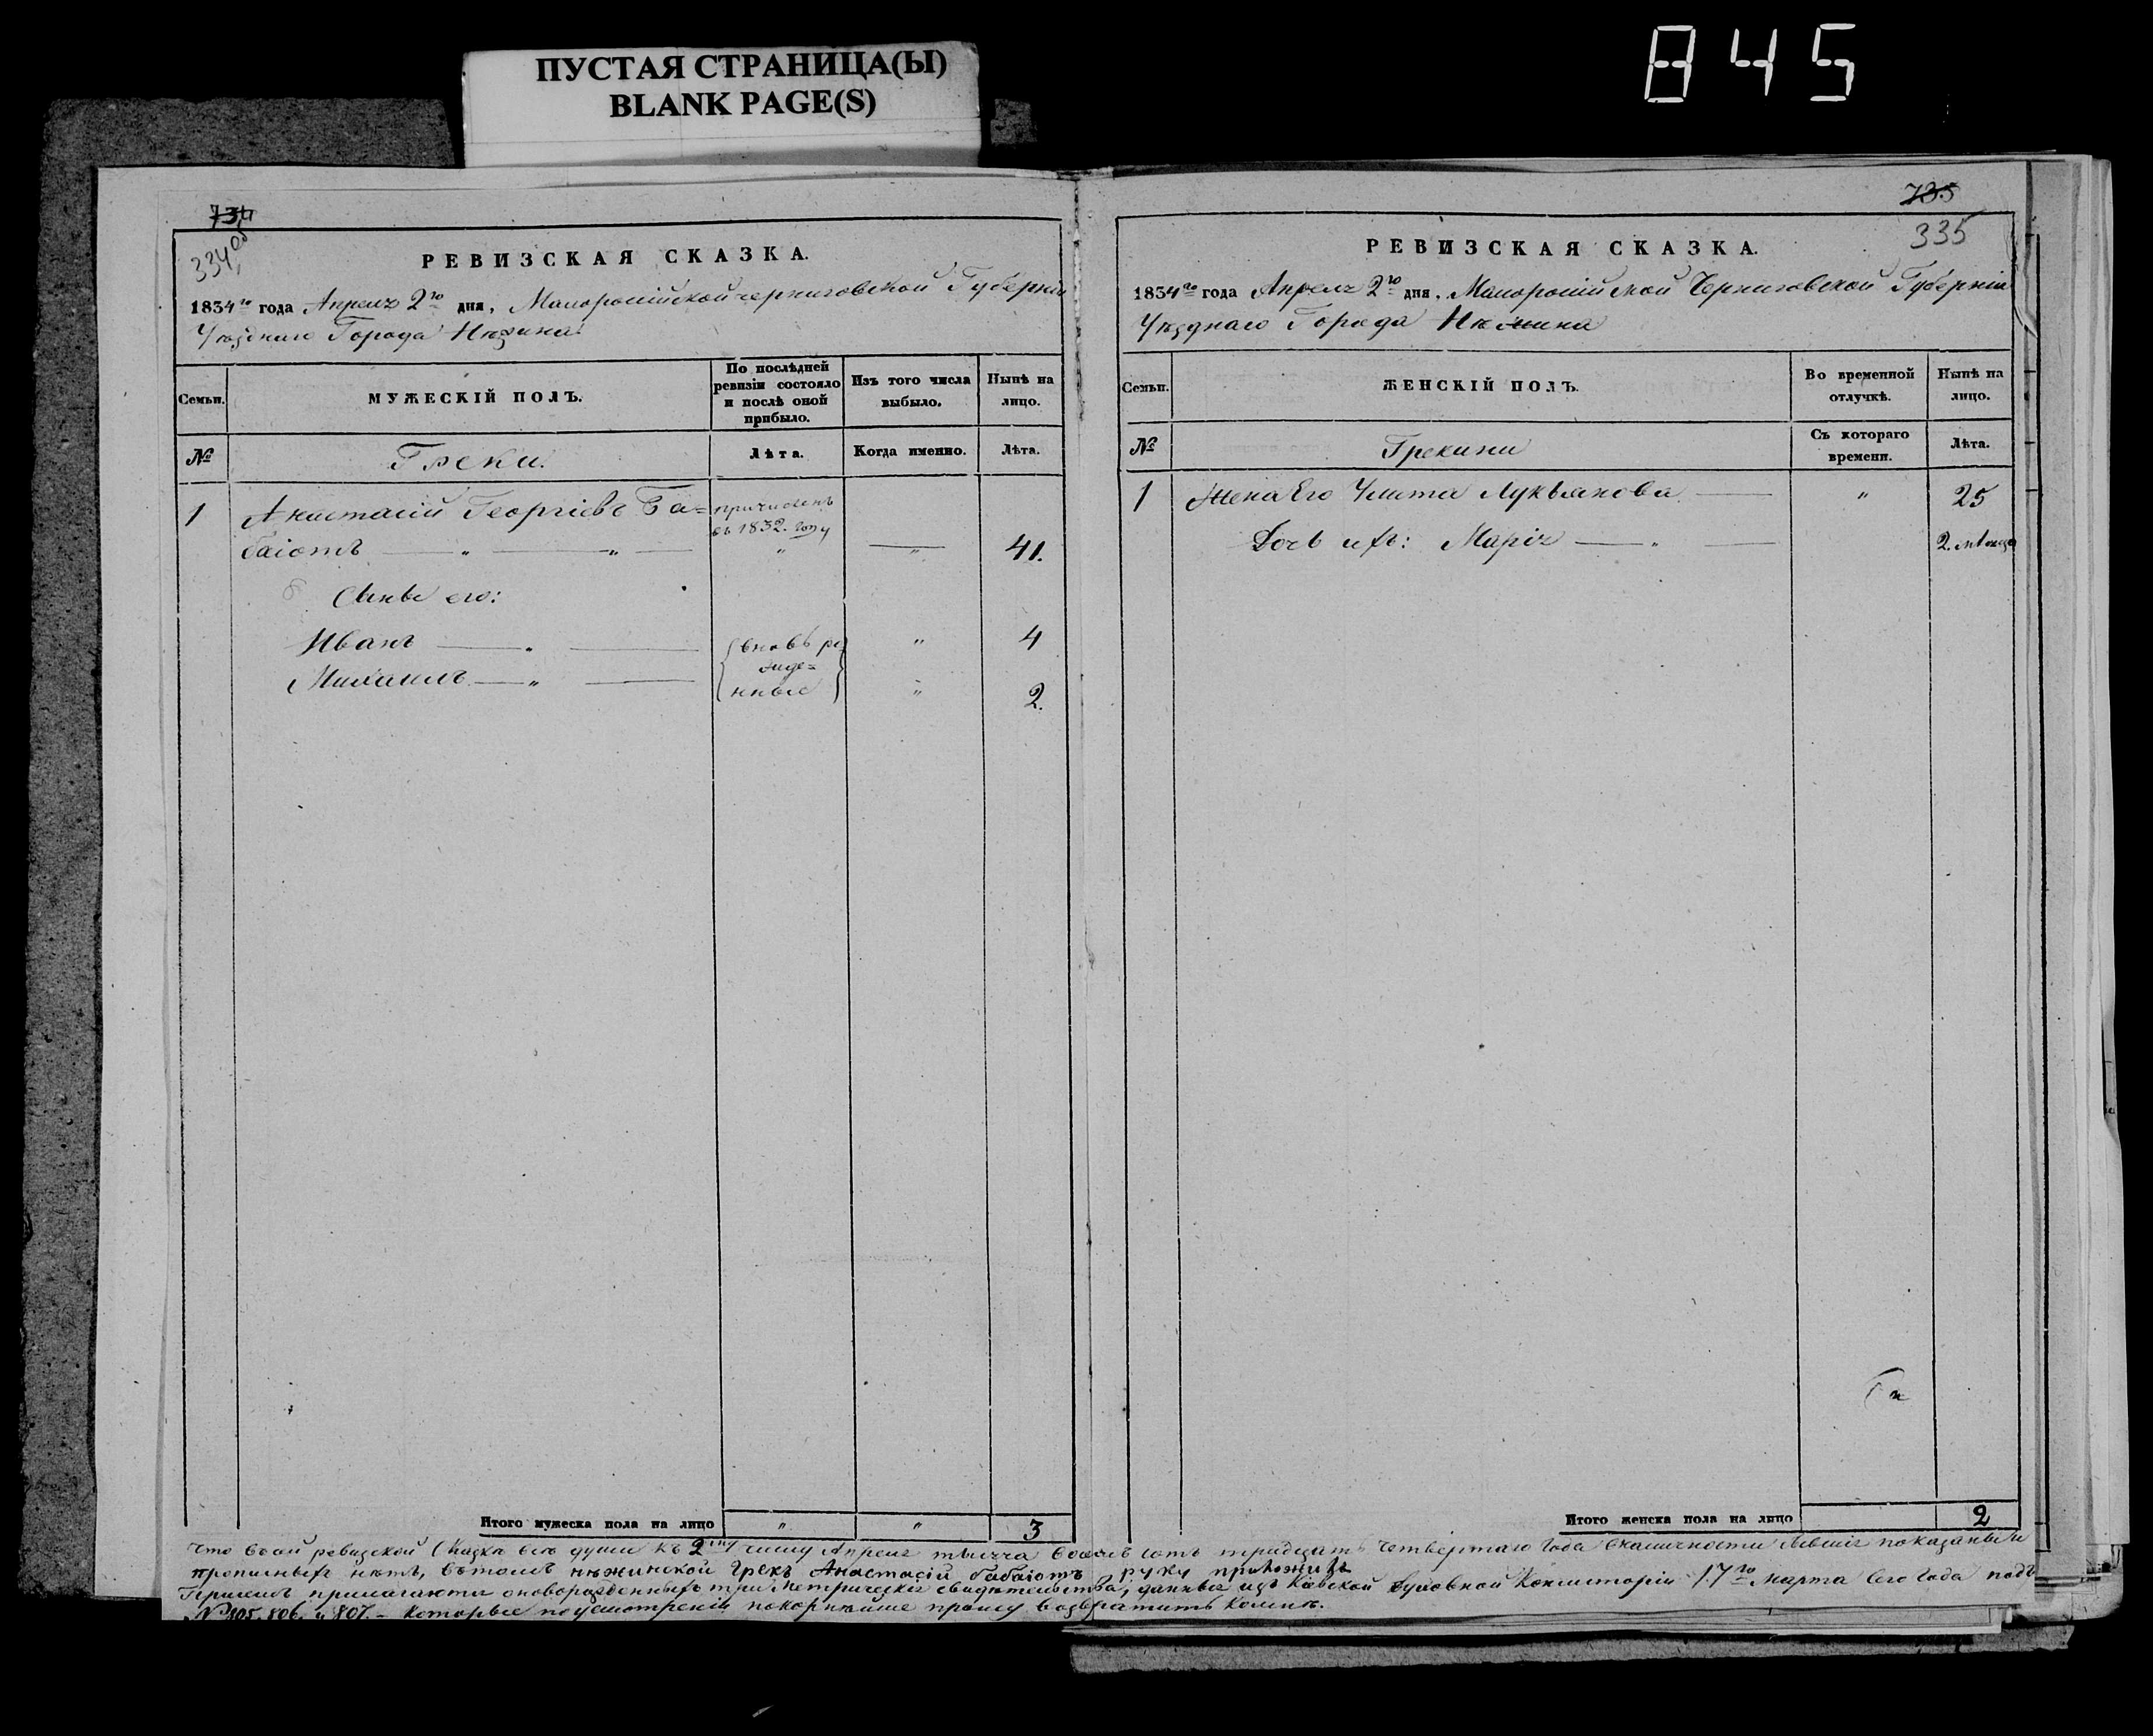 ПУСТАЯ СТРАНИЦА(Ы)
BLANK PAGE(S)
845
734
334 об
РЕВИЗСКАЯ СКАЗКА.
1834го года Апреля 2го дня, Малоросiйской черниговской Губернiи
Уѣзднаго Города Нѣжина
Семьи.
МУЖЕСКІЙ ПОЛЪ.
По послѣдней ревизіи состояло и послѣ оной прибыло.
Изъ того числа выбыло.
Нынѣ на лицо.
№
Греки.
Лѣта.
Когда именно.
Лѣта.
1 Анастасiй Георгiевъ Ба= причисленъ въ 1832. году
баiотъ — „ — „ — „ — „ — 41.
Сыны его:
Иванъ — „ — вновь ро „ 4
жде=
Михаилъ — „ — нные „ 2.
Итого мужеска пола на лицо „ „ 3
735
335
РЕВИЗСКАЯ СКАЗКА.
1834го года Апреля 2го дня, Малоросiйской Черниговской Губернiи
Уѣзднаго Города Нѣжина
Семьи.
ЖЕНСКІЙ ПОЛЪ.
Во временной отлучкѣ.
Нынѣ на лицо.
№
Грекини
Съ котораго времени.
Лѣта.
1 Жена Его Улита Лукьянова — „ 25
Дочь ихъ: Марiя — „ — 2. мѣсяца
Итого женска пола на лицо 2
Что въ сей ревизской Сказкѣ всѣ души къ 2му числу Апреля тысяча восемь сотъ тридцать четвертаго Года показаны и
прописныхъ нѣтъ, въ томъ нѣжинской грекъ Анастасій Бабаiотъ руку приложилъ
При семъ прилагаются оноворожденныхъ три Метрическiя свидѣтельства, данныя изъ Кiевской Духовной Консисторiи 17го марта Сего Года подъ
№ 805. 806. и 807. – которые по усмотренiи покорнѣйше прошу возвратить ко мнѣ.